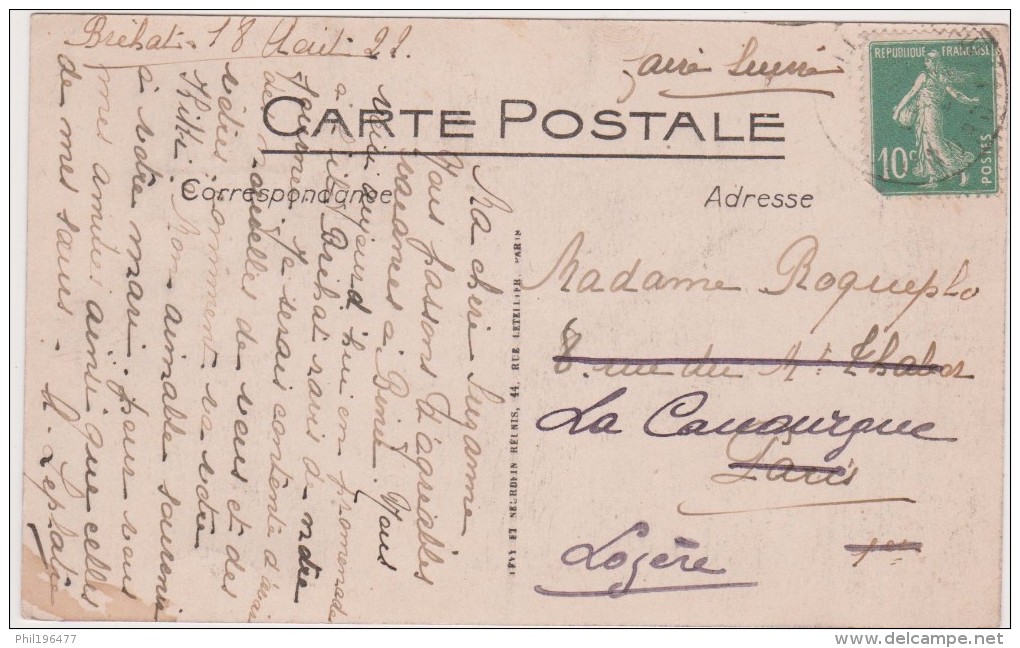 Bréhat 18 Août 22.
faire suivre
REPUBLIQUE FRANÇAISE
10c
POSTES
CARTE POSTALE
Correspondance
Adresse
Ma chère Suzanne
Nous passons d'agréables
vacances à Binic. Nous
voici aujourd'hui en promenade
à l'île Bréhat ravis de notre
journée. Je serais contente d'avoir
des nouvelles de vous et des
vôtres. Comment va votre
Kiki. Mon aimable souvenir
à votre mari, pour vous
mes amitiés ainsi que celles
de mes sœurs.
LEVY ET NEURDEIN RÉUNIS, 44, RUE LETELLIER, PARIS
Madame Roqueplo
8. rue du Mt Thabor
La Canourgue
Paris
1er
Lozère
Phil196477
delcampe.net